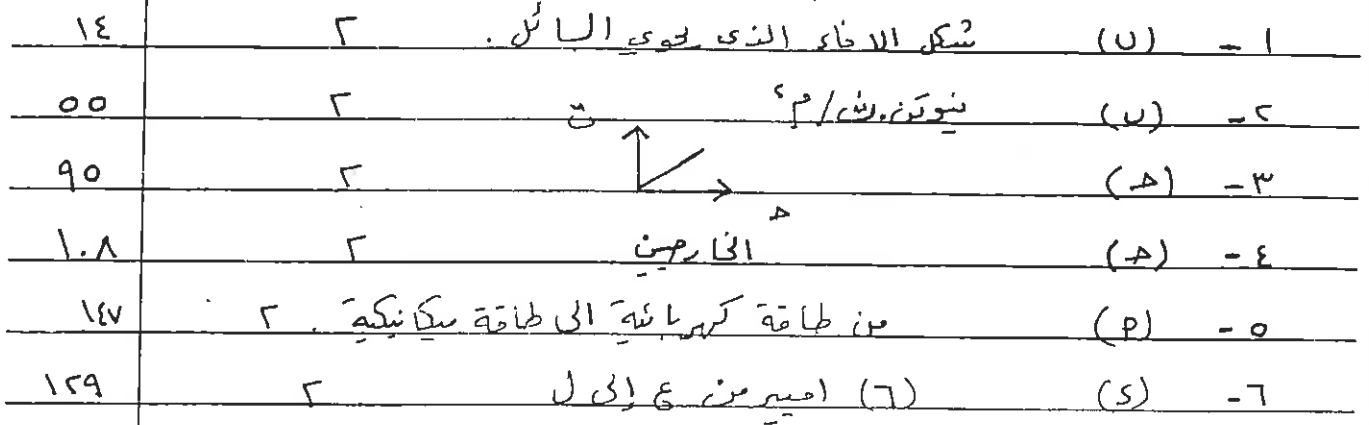 ١ - (ب) شكل الإناء الذي يحوي السائل . ٢ ١٤
٢ - (ب) نيوتن.ث/م٢ ٢ ٥٥
٣ - (ج) ت ج ٢ ٩٥
٤ - (ج) الخارصين ٢ ١٠٨
٥ - (أ) من طاقة كهربائية الى طاقة ميكانيكية . ٢ ١٤٧
٦ - (د) (٦) امبير من ع إلى ل ٢ ١٢٩